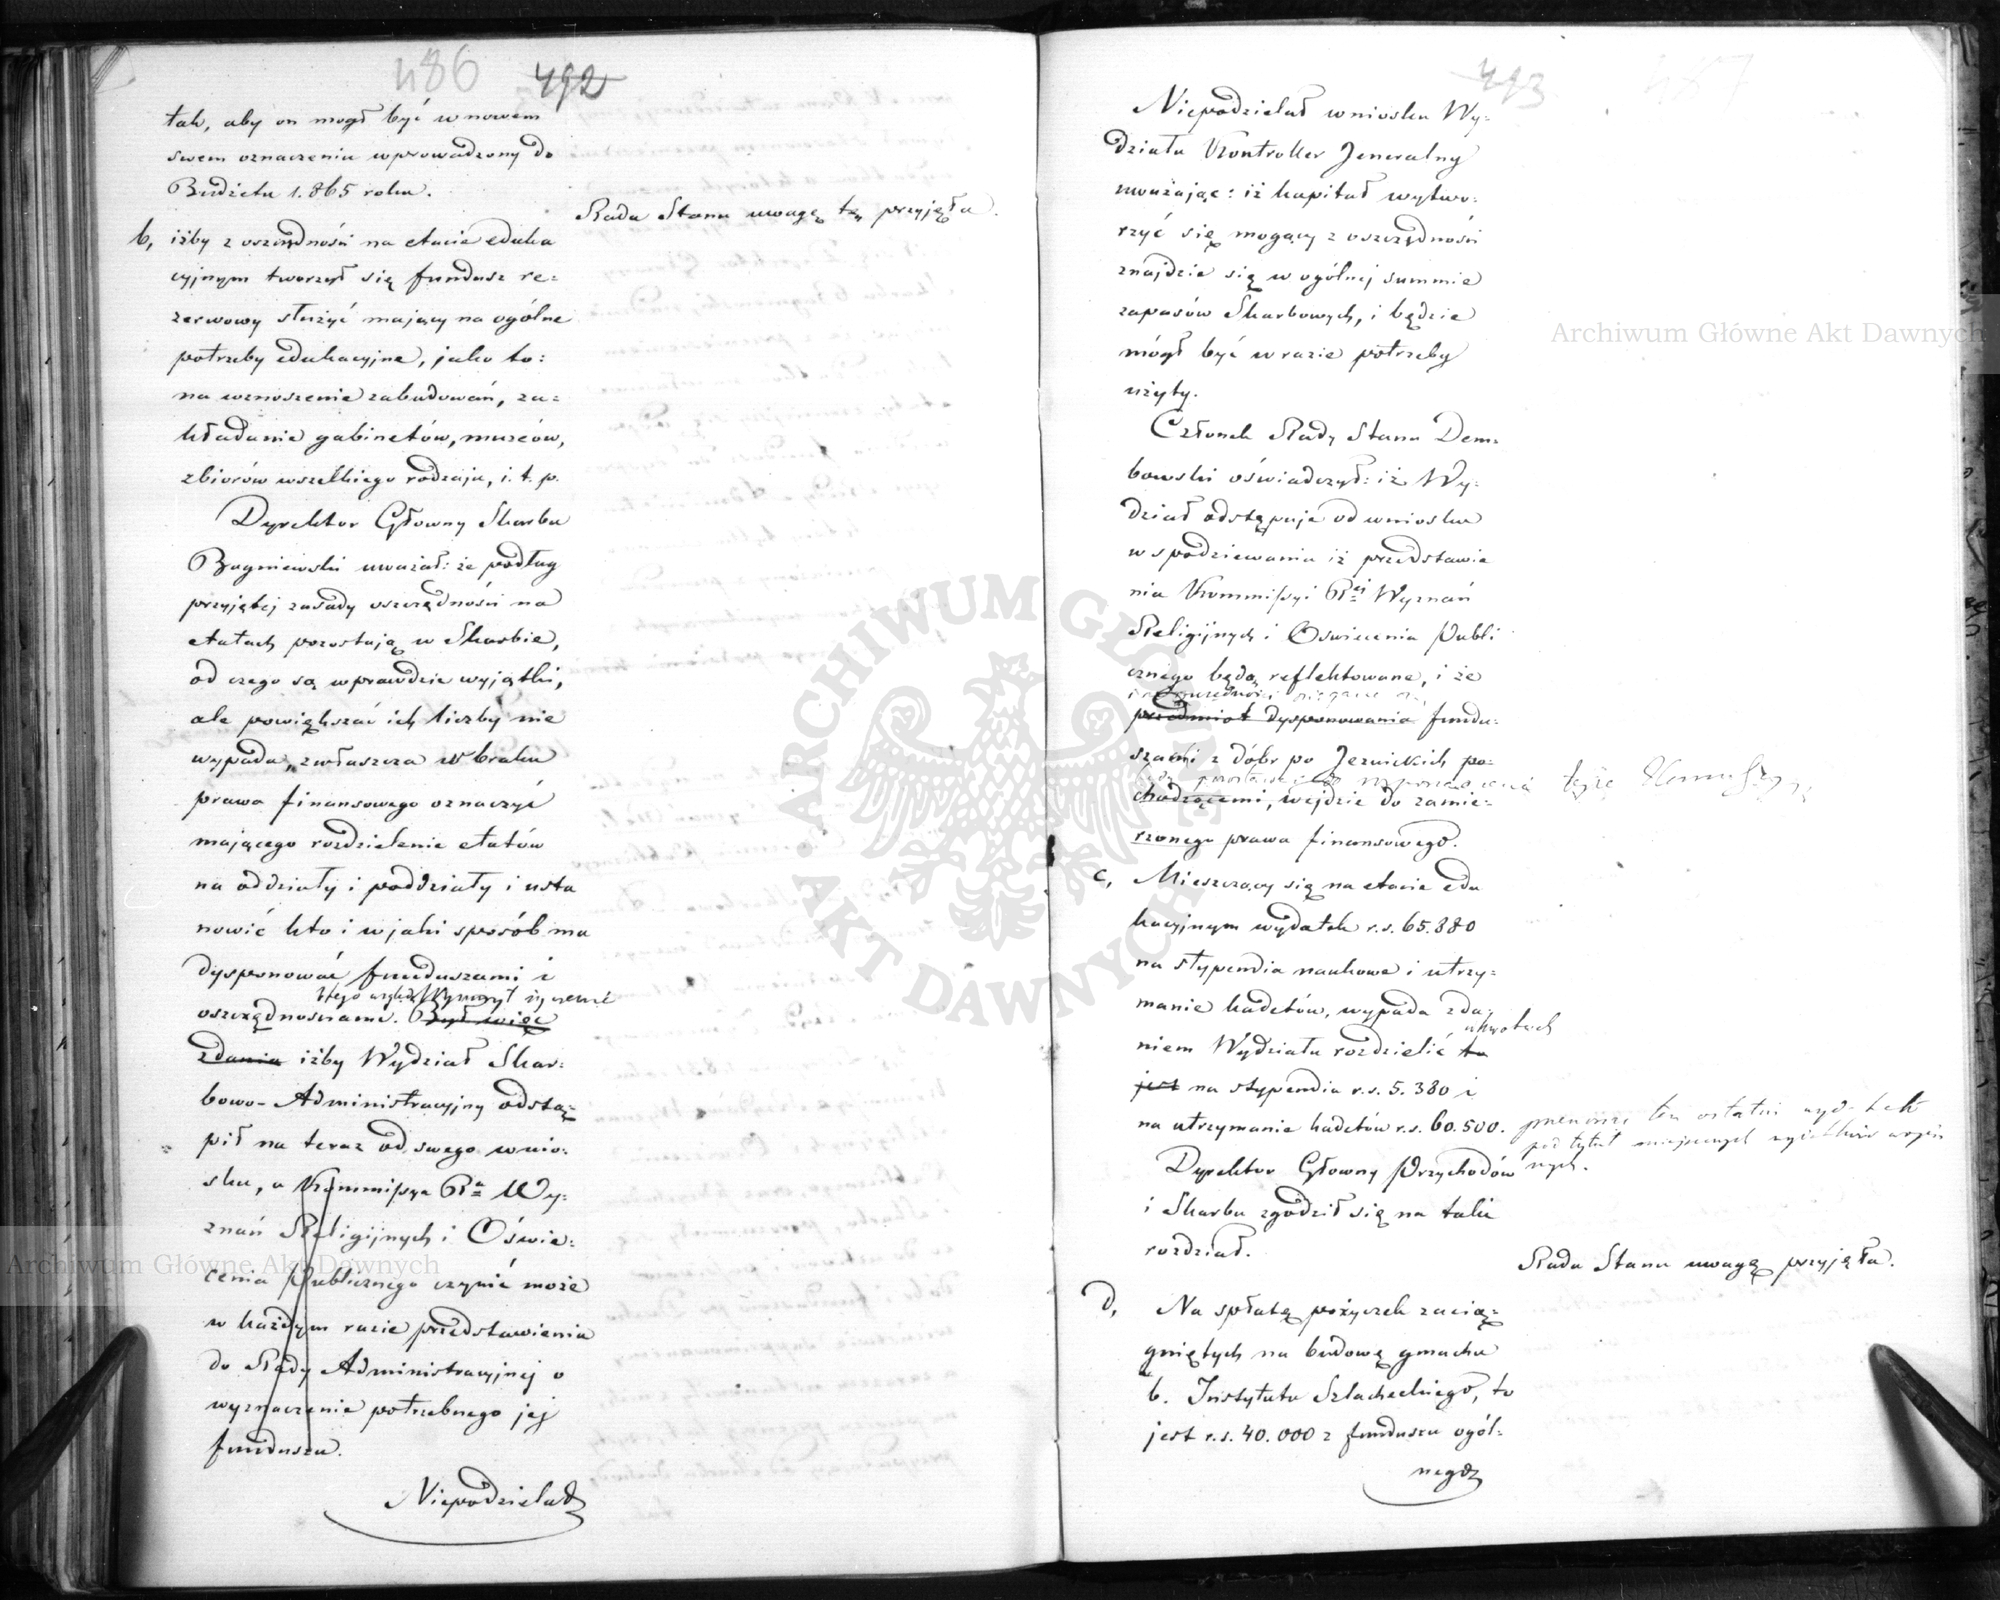 486 492
tak, aby on mogł być w nowem
swem oznaczeniu wprowadzony do
Budżetu 1.865 roku.
Rada Stanu uwagę tę przyjęła.
b, iżby z oszczędności na etacie eduka
cyjnym tworzył się fundusz re=
zerwowy służyć mający na ogólne
potrzeby edukacyjne, jako to:
na wznoszenie zabudowań, za=
kładanie gabinetów, muzeów,
zbiorów wszelkiego rodzaju, i. t. p.
Dyrektor Główny Skarbu
Bagniewski uważał: że podług
przyjętej zasady oszczędności na
etatach pozostają w Skarbie,
od czego są wprawdzie wyjątki,
ale powiększać ich liczby nie
wypada, zwłaszcza w braku
prawa finansowego oznaczyć
mającego rozdzielenie etatów
na oddziały i poddziały i usta
nowić kto i w jaki sposób ma
dysponować funduszami i
Z tego względu Wynurzył życzenie
oszczędnościami. Był więc
zdania iżby Wydział Skar=
bowo-Administracyjny odstą=
pił na teraz od swego wnio=
sku, a Kommissya Rª Wy=
znań Religijnych i Oświe=
cenia Publicznego czynić może
w każdym razie przedstawienia
do Rady Administracyjnej o
wyznaczenie potrzebnego jej
funduszu.
Niepodzielał
493 487
Niepodzielał wniosku Wy=
działu Kontroller Jeneralny
uważając: iż kapitał wytwo=
rzyć się mogący z oszczędności
znajdzie się w ogólnej summie
zapasów Skarbowych, i będzie
mógł być w razie potrzeby
użyty.
Członek Rady Stanu Dem=
bowski oświadczył: iż Wy=
dział odstępuje od wniosku
w spodziewaniu iż przedstawie
nia Kommissyi Rej Wyznań
Religijnych i Oswiecenia Publi
cznego będą reflektowane, i że
przedmiot dysponowania fundu=
szami z dóbr po Jezuickich po=
tejże Kommissyi
chodzącemi, wejdzie do zamie=
rzonego prawa finansowego.
c, Mieszczący się na etacie edu
kacyjnym wydatek r.s. 65.880
na stypendia naukowe i utrzy=
manie kadetów, wypada zda=
w kwotach
niem Wydziału rozdzielić to
jest na stypendia r.s. 5.380 i
na utrzymanie kadetów r.s. 60.500. przenosząc ten ostatni wydatek
pod tytuł
nych.
Dyrektor Główny Przychodów
i Skarbu zgodził się na taki
rozdział.
Rada Stanu uwagę przyjęła.
d, Na spłatę pożyczek zacią=
gniętych na budowę gmachu
b. Instytutu Szlacheckiego, to
jest r.s. 40.000 z funduszu ogól=
nego
Archiwum Główne Akt Dawnych
Archiwum Główne Akt Dawnych
ARCHIWUM GŁÓWNE AKT DAWNYCH